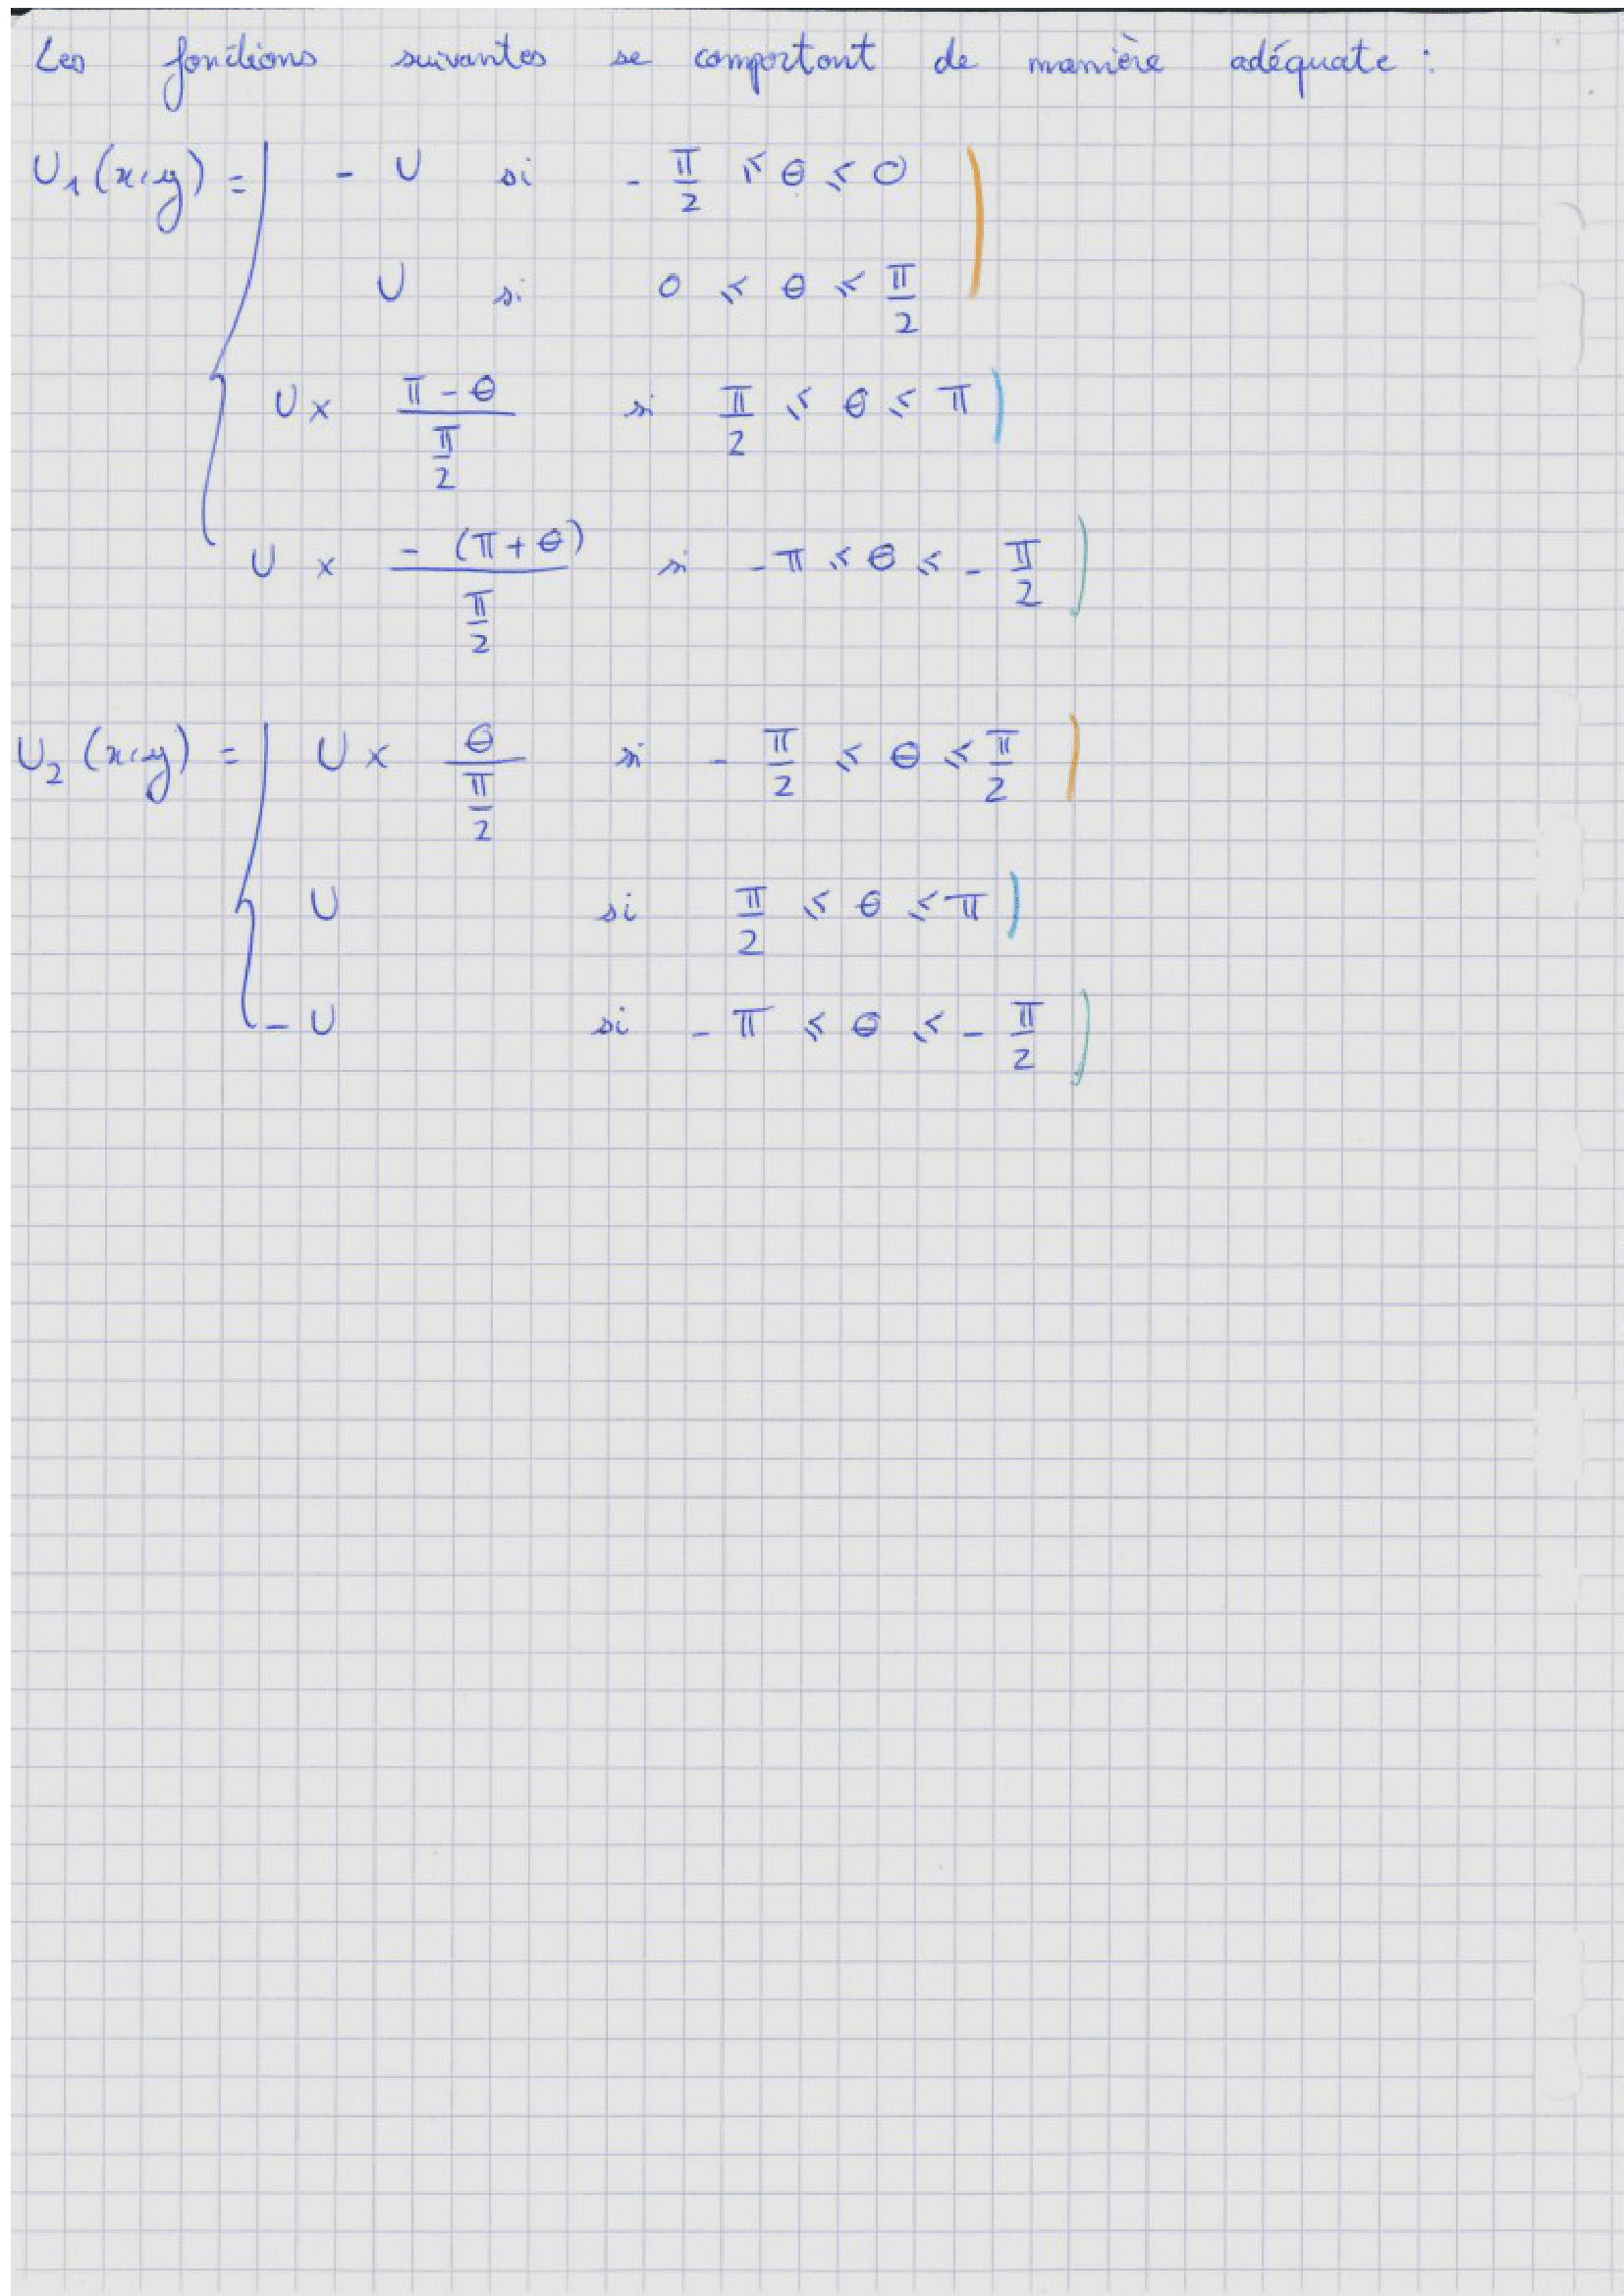 Les fonctions suivantes se comportent de manière adéquate :
U₁(x,y) = - U si - π/2 ≤ θ ≤ 0
U si 0 ≤ θ ≤ π/2
U × (π - θ)/(π/2) si π/2 ≤ θ ≤ π
U × -(π + θ)/(π/2) si - π ≤ θ ≤ - π/2
U₂(x,y) = U × θ/(π/2) si - π/2 ≤ θ ≤ π/2
U si π/2 ≤ θ ≤ π
- U si - π ≤ θ ≤ - π/2